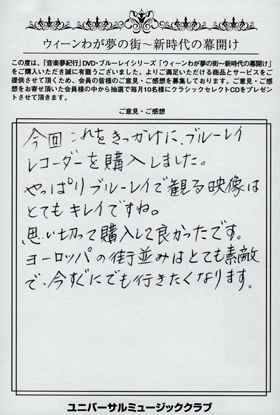 ウィーンわが夢の街～新時代の幕開け
この度は、「音楽夢紀行」DVD・ブルーレイシリーズ「ウィーンわが夢の街～新時代の幕開け」
をご購入いただき誠に有難うございます。よりご満足いただける商品とサービスをご
提供させて頂くため、会員の皆様のご意見・ご感想を募集しております。ご意見・ご感
想をお寄せ頂いた会員様の中から抽選で毎月10名様にクラシックセレクトCDをプレゼ
ントさせて頂きます。
ご意見・ご感想
今回これをきっかけに、ブルーレイ
レコーダーを購入しました。
やっぱりブルーレイで観る映像は
とてもキレイですね。
思い切って購入して良かったです。
ヨーロッパの街並みはとても素敵
で、今すぐにでも行きたくなります。
ユニバーサルミュージッククラブ